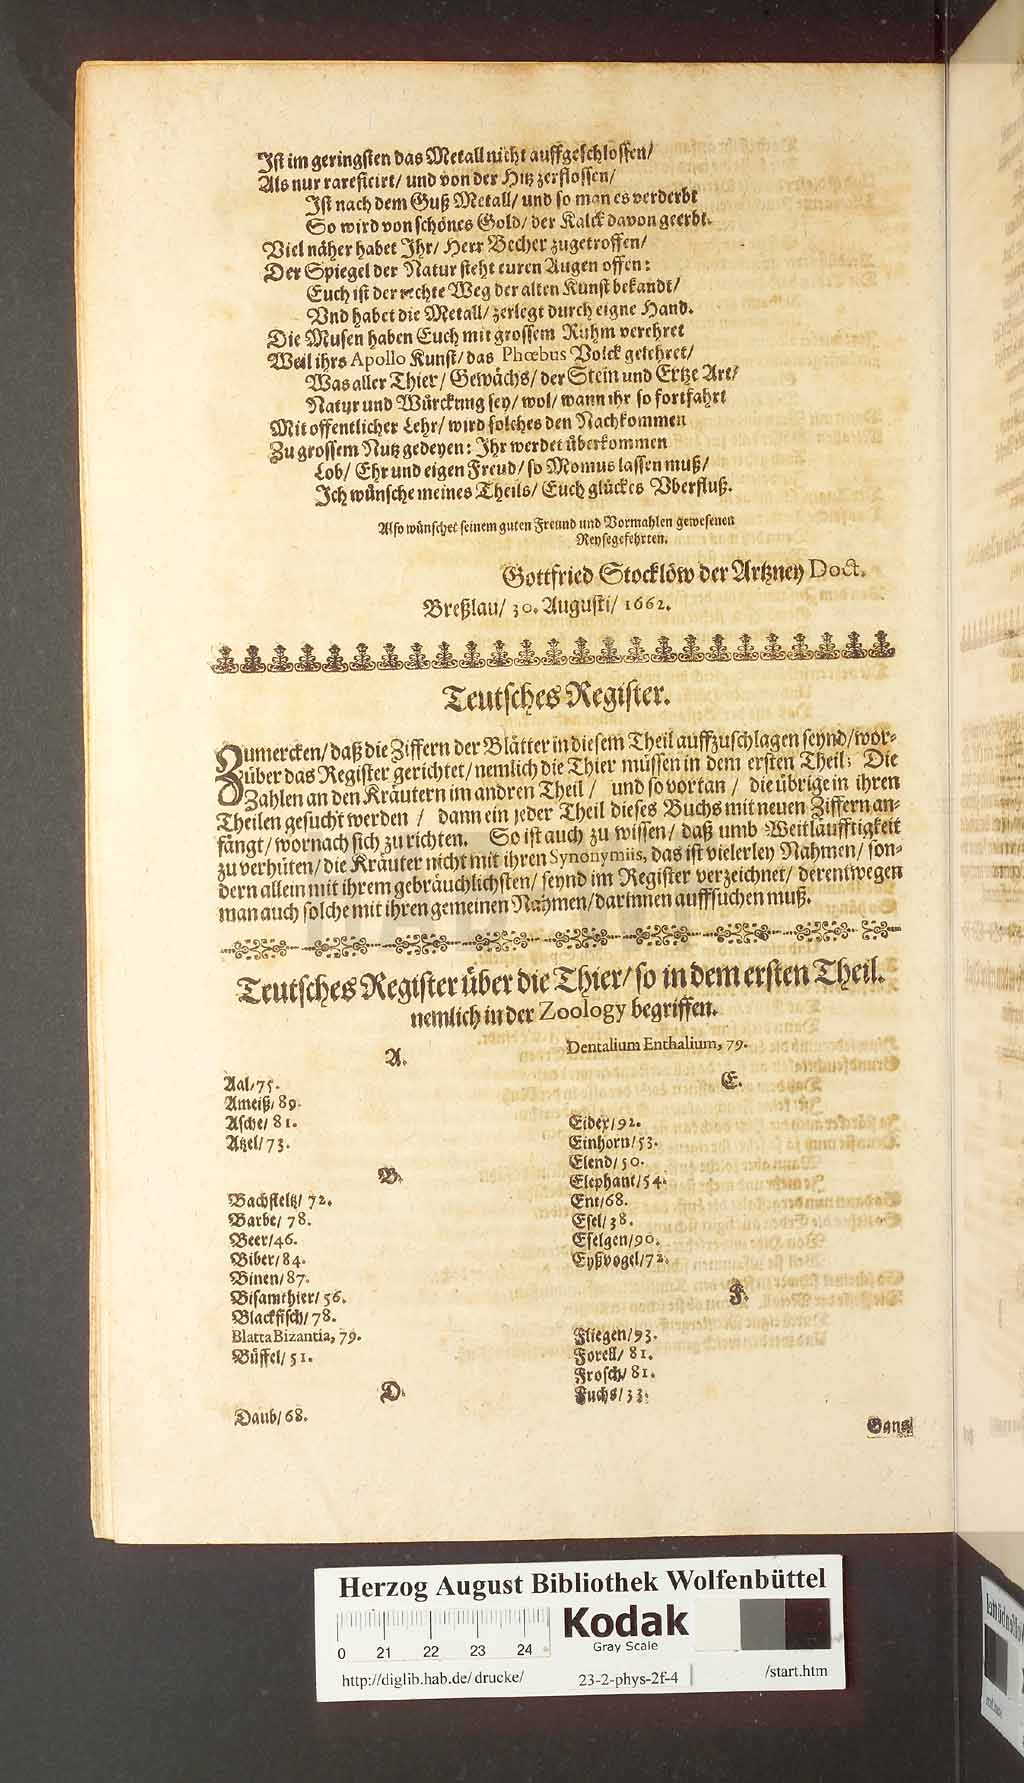 Ist im geringsten das Metall nicht auffgeschlossen/
Als nur rareficirt/ und von der Hitz zerflossen/
Ist nach dem Guß Metall/ und so man es verderbt
So wird von schönes Gold/ der Kalck davon geerbt.
Viel näher habet Ihr/ Herr Becher zugetroffen/
Der Spiegel der Natur steht euren Augen offen:
Euch ist der rechte Weg der alten Kunst bekandt/
Vnd habet die Metall/ zerlegt durch eigne Hand.
Die Musen haben Euch mit grossem Ruhm verehret
Weil ihrs Apollo Kunst/ das Phœbus Volck gelehret/
Was aller Thier/ Gewächs/ der Stein und Ertze Art/
Natur und Würckung sey/ wol/ wann ihr so fortfahrt
Mit offentlicher Lehr/ wird solches den Nachkommen
Zu grossem Nutz gedeyen: Ihr werdet überkommen
Lob/ Ehr und eigen Freud/ so Momus lassen muß/
Ich wünsche meines Theils/ Euch glückes Vberfluß.
Also wünschet seinem guten Freund und Vormahlen gewesenen
Reysegefehrten.
Gottfried Stocklöw der Artzney Doct.
Breßlau/ 30. Augusti/ 1662.
Teutsches Register.
Zumercken/ daß die Ziffern der Blätter in diesem Theil auffzuschlagen seynd/ wor-
über das Register gerichtet/ nemlich die Thier müssen in dem ersten Theil; Die
Zahlen an den Kräutern im andren Theil/ und so vortan/ die übrige in ihren
Theilen gesucht werden/ dann ein jeder Theil dieses Buchs mit neuen Ziffern an-
fängt/ wornach sich zu richten. So ist auch zu wissen/ daß umb Weitläufftigkeit
zu verhüten/ die Kräuter nicht mit ihren Synonymiis, das ist vielerley Nahmen/ son-
dern allein mit ihrem gebräuchlichsten/ seynd im Register verzeichnet/ derentwegen
man auch solche mit ihren gemeinen Nahmen/ darinnen auffsuchen muß.
Teutsches Register über die Thier/ so in dem ersten Theil.
nemlich in der Zoology begriffen.
A.
Aal/ 75.
Ameiß/ 89.
Asche/ 81.
Atzel/ 73.
B.
Bachsteltz/ 72.
Barbe/ 78.
Beer/ 46.
Biber/ 84.
Binen/ 87.
Bisamthier/ 56.
Blackfisch/ 78.
Blatta Bizantia, 79.
Büffel/ 51.
D.
Daub/ 68.
Dentalium Enthalium, 79.
E.
Eidex/ 92.
Einhorn/ 53.
Elend/ 50.
Elephant/ 54.
Ent/ 68.
Esel/ 38.
Eselgen/ 90.
Eyßvogel/ 72.
F.
Fliegen/ 93.
Forell/ 81.
Frosch/ 81.
Fuchs/ 33.
Gans/
Herzog August Bibliothek Wolfenbüttel
0 21 22 23 24
Kodak
Gray Scale
http://diglib.hab.de/drucke/ 23-2-phys-2f-4 /start.htm